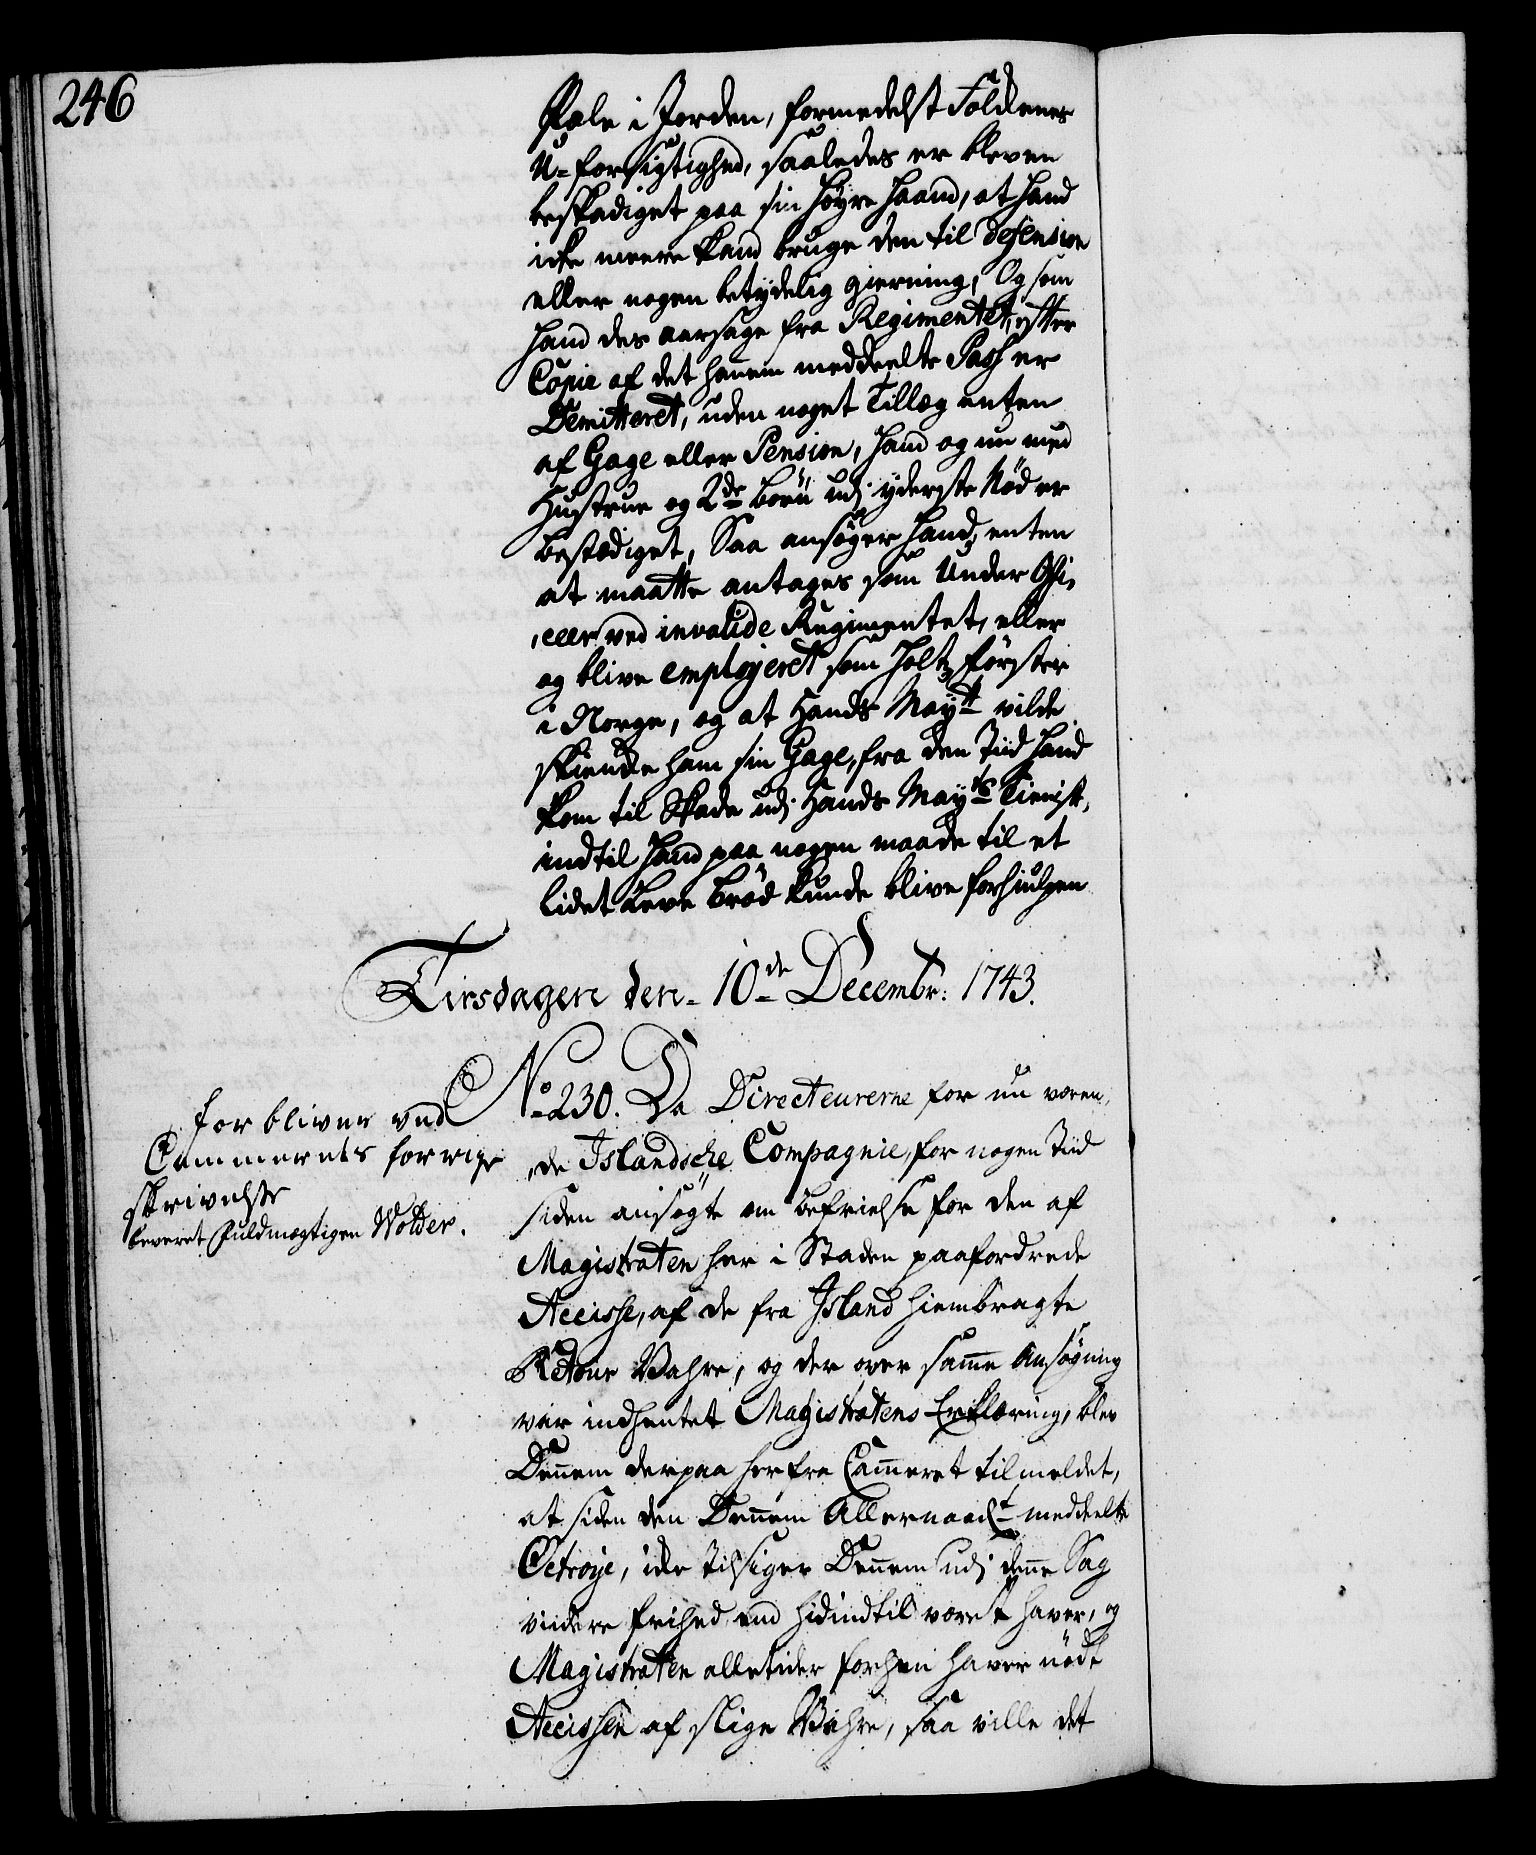 246
Pæle i Jorden, formedelst Foldenes
U-forsigtighed, saaledes er bleven
beskadiget paa sin høyre Haand, at hand
icke meere kand bruge den til defension
eller nogen betydelig gierning, Og som
hand des aarsage fra Regimentet, efter
Copie af det hannem meddeelte Pass er
Demitteret, uden noget Tillæg enten
af Gage eller Pension, hand og nu med
Hustrue og 2de børn udj yderste Nød er
bestædiget, Saa ansøger hand, enten
at maatte antages som Under Offi-
,ceer ved invalide Regimentet, eller
og blive employeret som Holtz förster
i Norge, og at Hands Maytt vilde
skiencke ham sin Gage, fra den Tiid hand
kom til Skade udj Hands Mayts Tieniste,
indtil hand paa nogen maade til et
lidet Leve brød kunde blive forhiulpen
Tirsdagen den 10de Decembr: 1743.
forbliver ved
Cammerets forrige
skrivelse
leveret Fuldmægtigen Wolder.
No 230. Da Directeurerne for nu væren,
,de Islandsche Compagnie, for nogen Tiid
siden ansøgte om befrielse for den af
Magistraten her i Staden paafordrede
Accisse, af de fra Island hiembragte
Retour Vahre, og der over samme Ansøgning
var indhentet Magistratens Erklæring, blev
Dennem derpaa her fra Cammeret tilmeldet,
at siden den Dennem Allernaadt meddeelte
Octroye, icke tilsiger Dennem udj denne Sag
viidere frihed end hidindtil været haver, og
Magistraten alletider forhen haver nödt
Accissen af slige Vahre, saa ville det